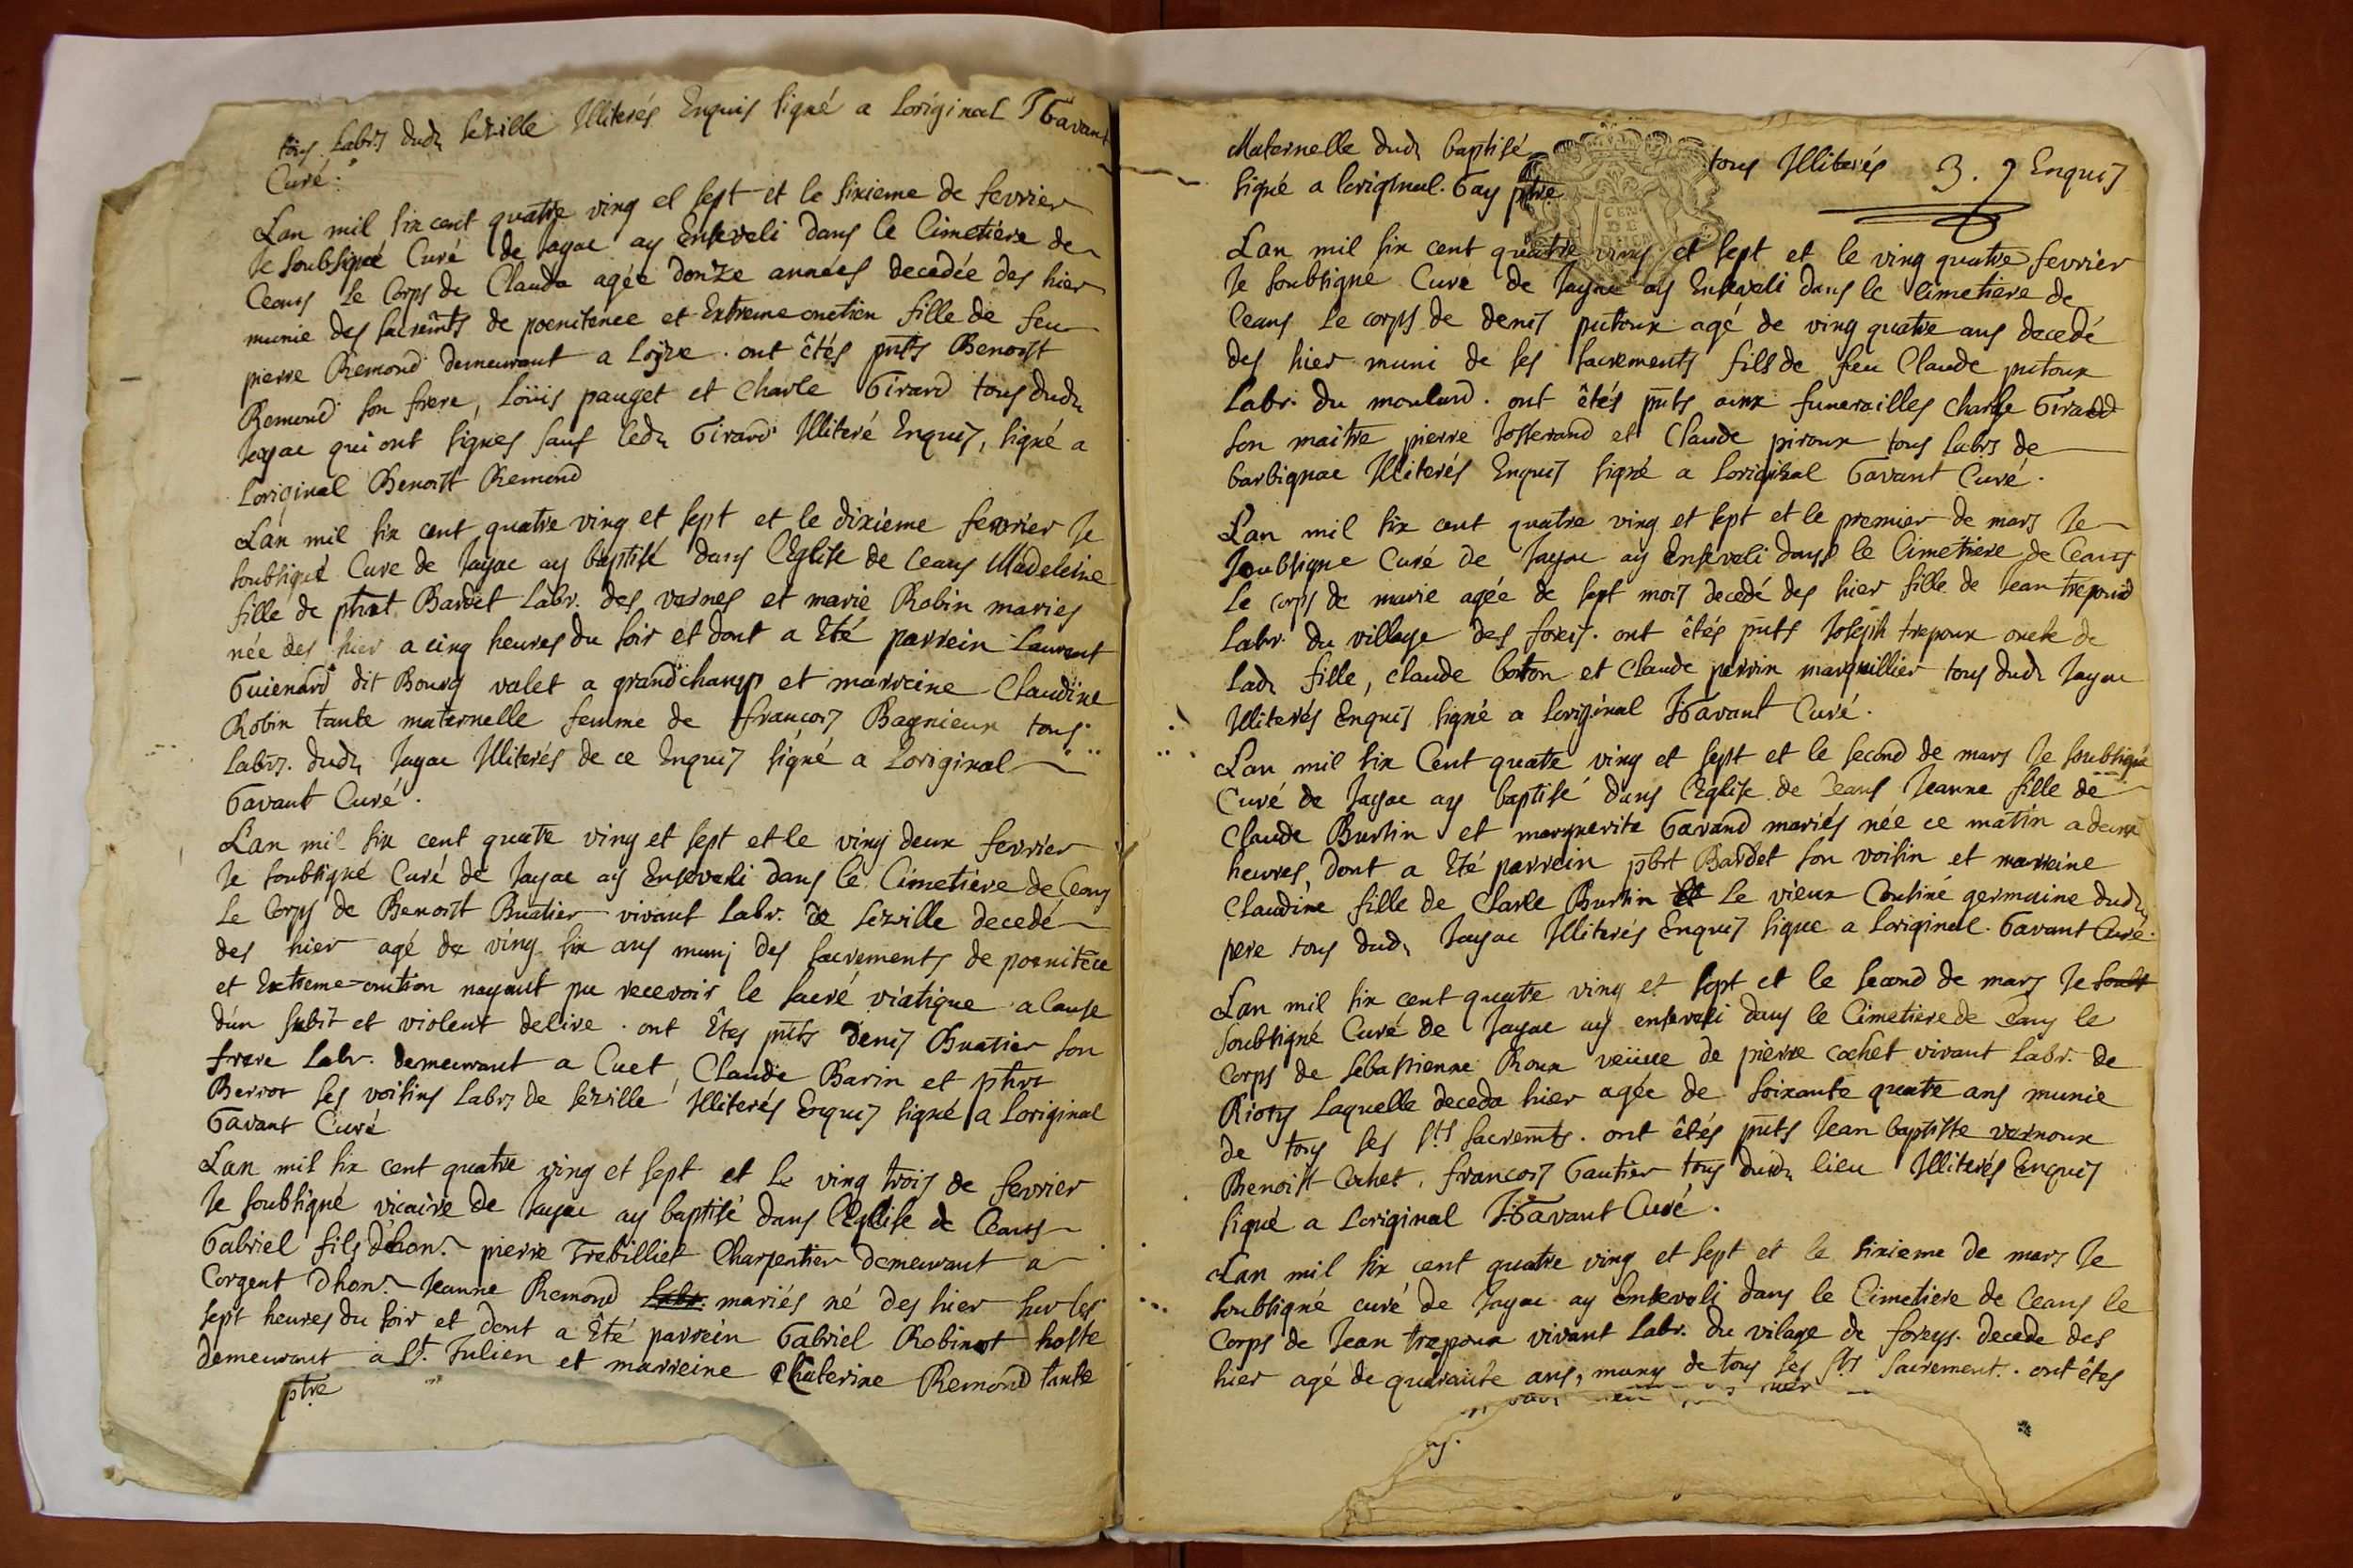 tous Labrs dudt Sezille Illiterés Enquis signé a Loriginal J Gavant
Curé.
Lan mil six cent quatre ving et sept et le sixieme de fevrier
Je soubsigné Curé de Jayac ay Enseveli dans le Cimetiére de
Ceans Le Corps de Clauda agée donze années decedée des hier
munie des sacremts de poenitence et Extreme onction fille de feu
pierre Remond demeurant a Loyze. ont êtés pnts Benoist
Remond son frere, Loüis pauget et Charle Girard tous dudt
Jayac qui ont signes sauf ledt Girard Illiteré Enquis, signé a
Loriginal Benoist Remond
Lan mil six cent quatre ving et sept et le dixieme fevrier Je
soubsigné Cure de Jayac ay baptisé dans l'Eglise de ceans Madeleine
fille de phbt Bardet Labr. des vernes et marie Robin maries
née des hier a cinq heures du soir et dont a Eté parrein Laurent
Guienard dit Bourg valet a grandchamp et marreine Claudine
Robin tante maternelle femme de francois Bagnieux tous
Labrs. dudt Jayac Illiterés de ce Enquis signé a Loriginal
Gavant Curé.
Lan mil six cent quatre ving et sept et le ving deux fevrier
Je soubsigné Curé de Jayac ay Enseveli dans le Cimetiére de Ceans
Le Corps de Benoist Buatier vivant Labr. de Sezille decedé
des hier agé de ving six ans munj des sacrements de poenitēce
et Extreme-onction nayant pu recevoir le sacré viatique a Cause
dún subit et violent delire. ont Êtes pnts denis Buatier son
frere Labr. demeurant a Cuet, Claude Barin et phbt
Berrot ses voisins Labrs de Sezille Illiterés Enquis signé a Loriginal
Gavant Curé
Lan mil six cent quatre ving et sept et le ving trois de fevrier
Je soubsigné vicaire de Jayac ay baptisé dans l'Eglise de Ceans
Gabriel fils d'hon. pierre Trebilliet Charpentier demeurant a
Corgent Dhon. Jeanne Remond Labr. mariés né des hier sur les
sept heures du soir et dont a Été parrein Gabriel Robinot hoste
demeurant a St. Julien et marreine Chaterine Remond tante
ptre
Maternelle dudt baptisé tous Illiterés 3. Enquis
signé a loriginal. Gay ptre
Lan mil six cent quatre ving et sept et le ving quatre fevrier
Je soubsigné Curé de Jayac ay Enseveli dans le Cimetiere de
Ceans Le corps de denis putoux agé de ving quatre ans decedé
des hier muni de ses sacrements fils de feu Claude putoux
Labr. du moulard. ont êtés pnts aux funerailles charle Girard
son maitre pierre Josserand et Claude piroux tous Labrs de
barbignac Illiterés Enquis signé a Loriginal Gavant Curé.
Lan mil six cent quatre ving et sept et le premier de mars Je
Soubsigne Curé de Jayac ay Enseveli dans le Cimetiere de Ceans
Le corps de marie agée de sept mois decedé des hier fille de Jean trepoud
Labr. du village des foreis. ont êtés pnts Joseph trepoux oncle de
Ladt fille, claude borton et Claude perrin marguillier tous dudt Jayac
Illiterés Enquis signé a Loriginal J Gavant Curé.
Lan mil six Cent quatre ving et sept et le second de mars Je soubsigné
Curé de Jayac ay baptisé dans l'Eglise de Ceans Jeanne fille de
Claude Burtin et marguerite Gavand mariés née ce matin a deux
heures, dont a Eté parrein phbt Bardet son voisin et marreine
Claudine fille de Charle Burtin et Le vieux Cousine germaine dudt
pere tous dudt Jayac Illiterés Enquis signe a Loriginal. Gavant Curé.
Lan mil six cent quatre ving et sept et le second de mars Je soubs
soubsigné Curé de Jayac ay enseveli dans le Cimetiere de Ceans le
Corps de Sebastienne Roux veüve de pierre cochet vivant Labr. de
Riots Laquelle deceda hier agée de soixante quatre ans munie
de tous ses Sts sacremts. ont êtés pnts Jean baptiste vernoux
Benoist Cochet, francois Gautier tous dudt lieu Illiterés Enquis
signé a Loriginal J Gavant Curé.
Lan mil six cent quatre ving et sept et le sixieme de mars Je
soubsigné curé de Jayac ay Enseveli dans le Cimetiere de Ceans le
Corps de Jean trepoux vivant Labr. du vilage de foreys. decede des
hier agé de quarante ans, muny de tous ses Sts Sacrement. ont êtes